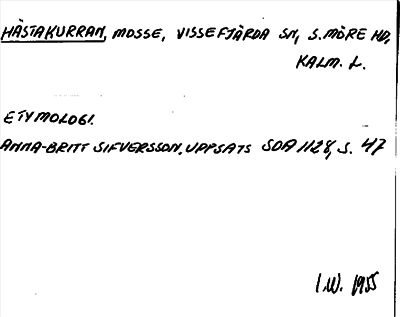 HÄSTAKURRAN, MOSSE, VISSEFJÄRDA SN, S. MÖRE HD,
KALM. L.
ETYMOLOGI.
ANNA-BRITT SIFVERSSON, UPPSATS SOA 1128, S. 47
I.W. 1955